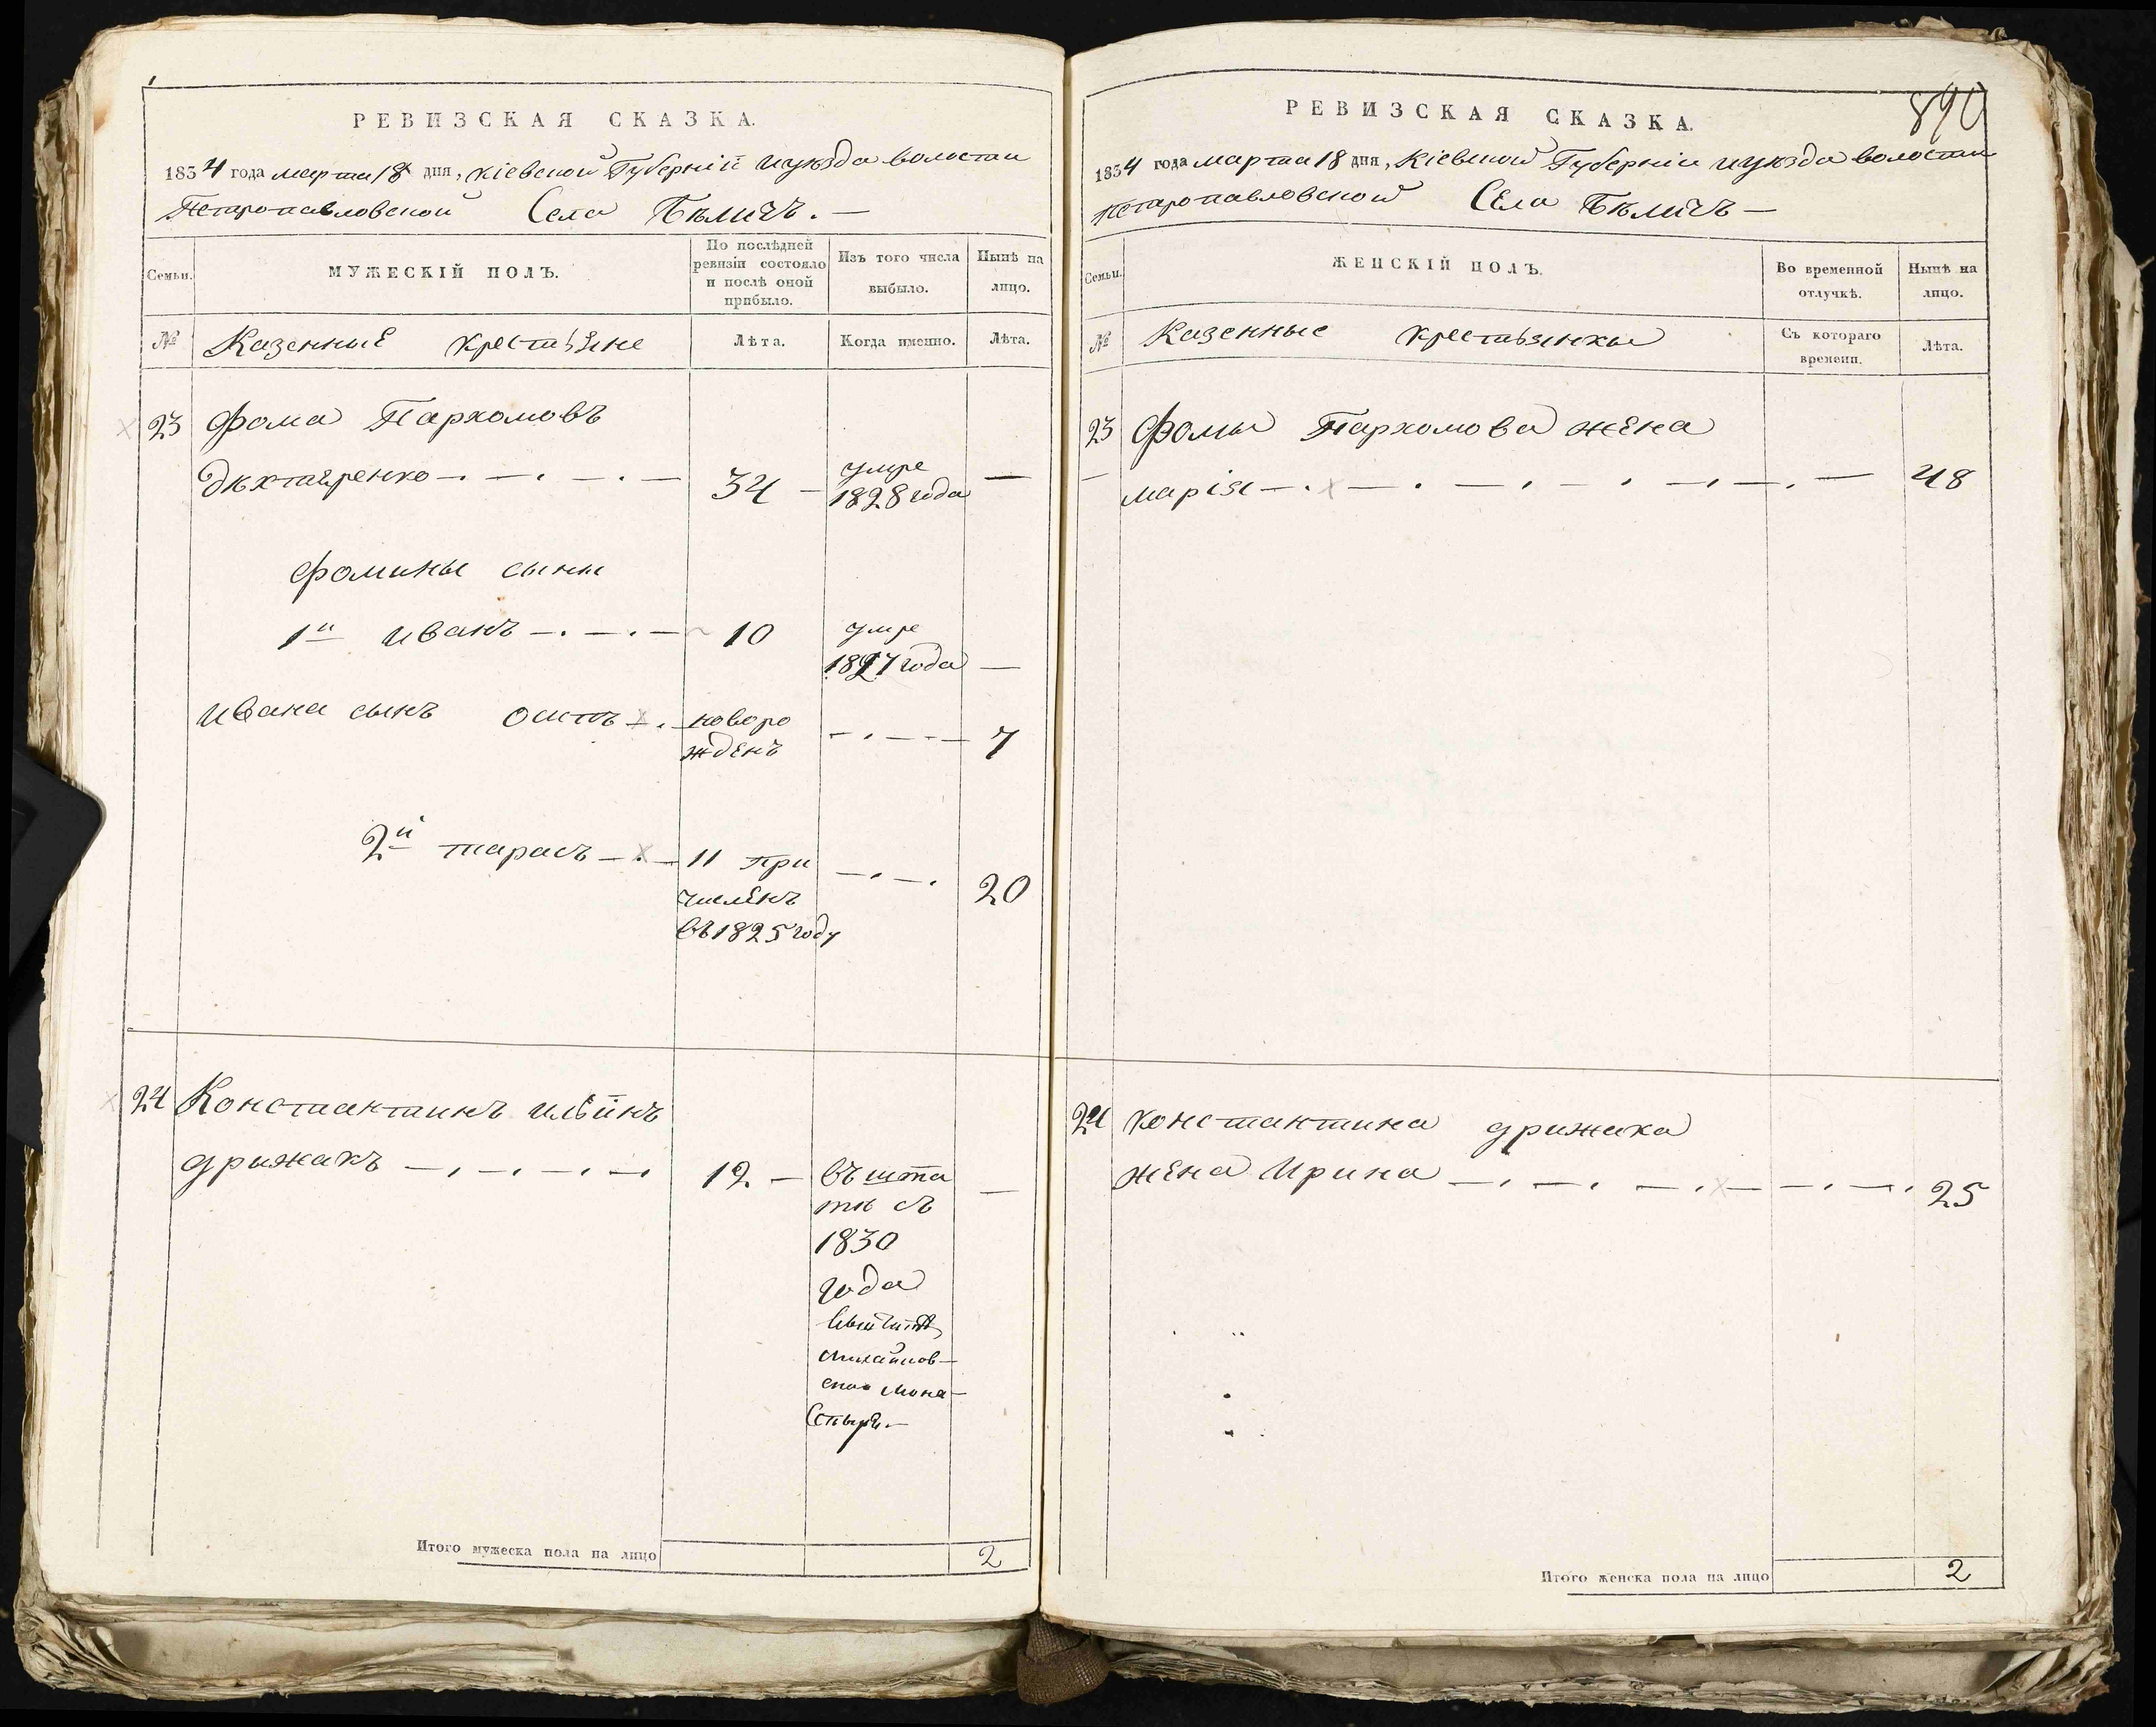 РЕВИЗСКАЯ СКАЗКА.
1834 года марта 18 дня, Кіевской Губерніи и уѣзда волости
Петропавловской Села Бѣличъ. —
Семьи.
МУЖЕСКІЙ ПОЛЪ.
По послѣдней ревизіи состояло и послѣ оной прибыло.
Изъ того числа выбыло.
Нынѣ на лицо.
№
Казенные крестьяне
Лѣта.
Когда именно.
Лѣта.
23 Фома Пархомовъ
Дѣхтяренко 34 умре 1828 года —
Фомины сыны
1й Иванъ 10 умре 1827 года —
Ивана сынъ новорожденъ 7
2й Тарасъ 11 причисленъ въ 1825 году 20
24 Константинъ Ильинъ
Дрижакъ 12 — въ штатѣ съ 1830 года
Михайловского Монастыря. —
Итого мужеска пола на лицо 2
890
РЕВИЗСКАЯ СКАЗКА.
1834 года марта 18 дня, Кіевской Губерніи и уѣзда волости
Петропавловской Села Бѣличъ —
Семьи.
ЖЕНСКІЙ ПОЛЪ.
Во временной отлучкѣ.
Нынѣ на лицо.
№
Казенные крестьянки
Съ котораго времени.
Лѣта.
23 Фомы Пархомова жена
Марія 48
24 Константина Дрижака
жена Ирина 25
Итого женска пола на лицо 2